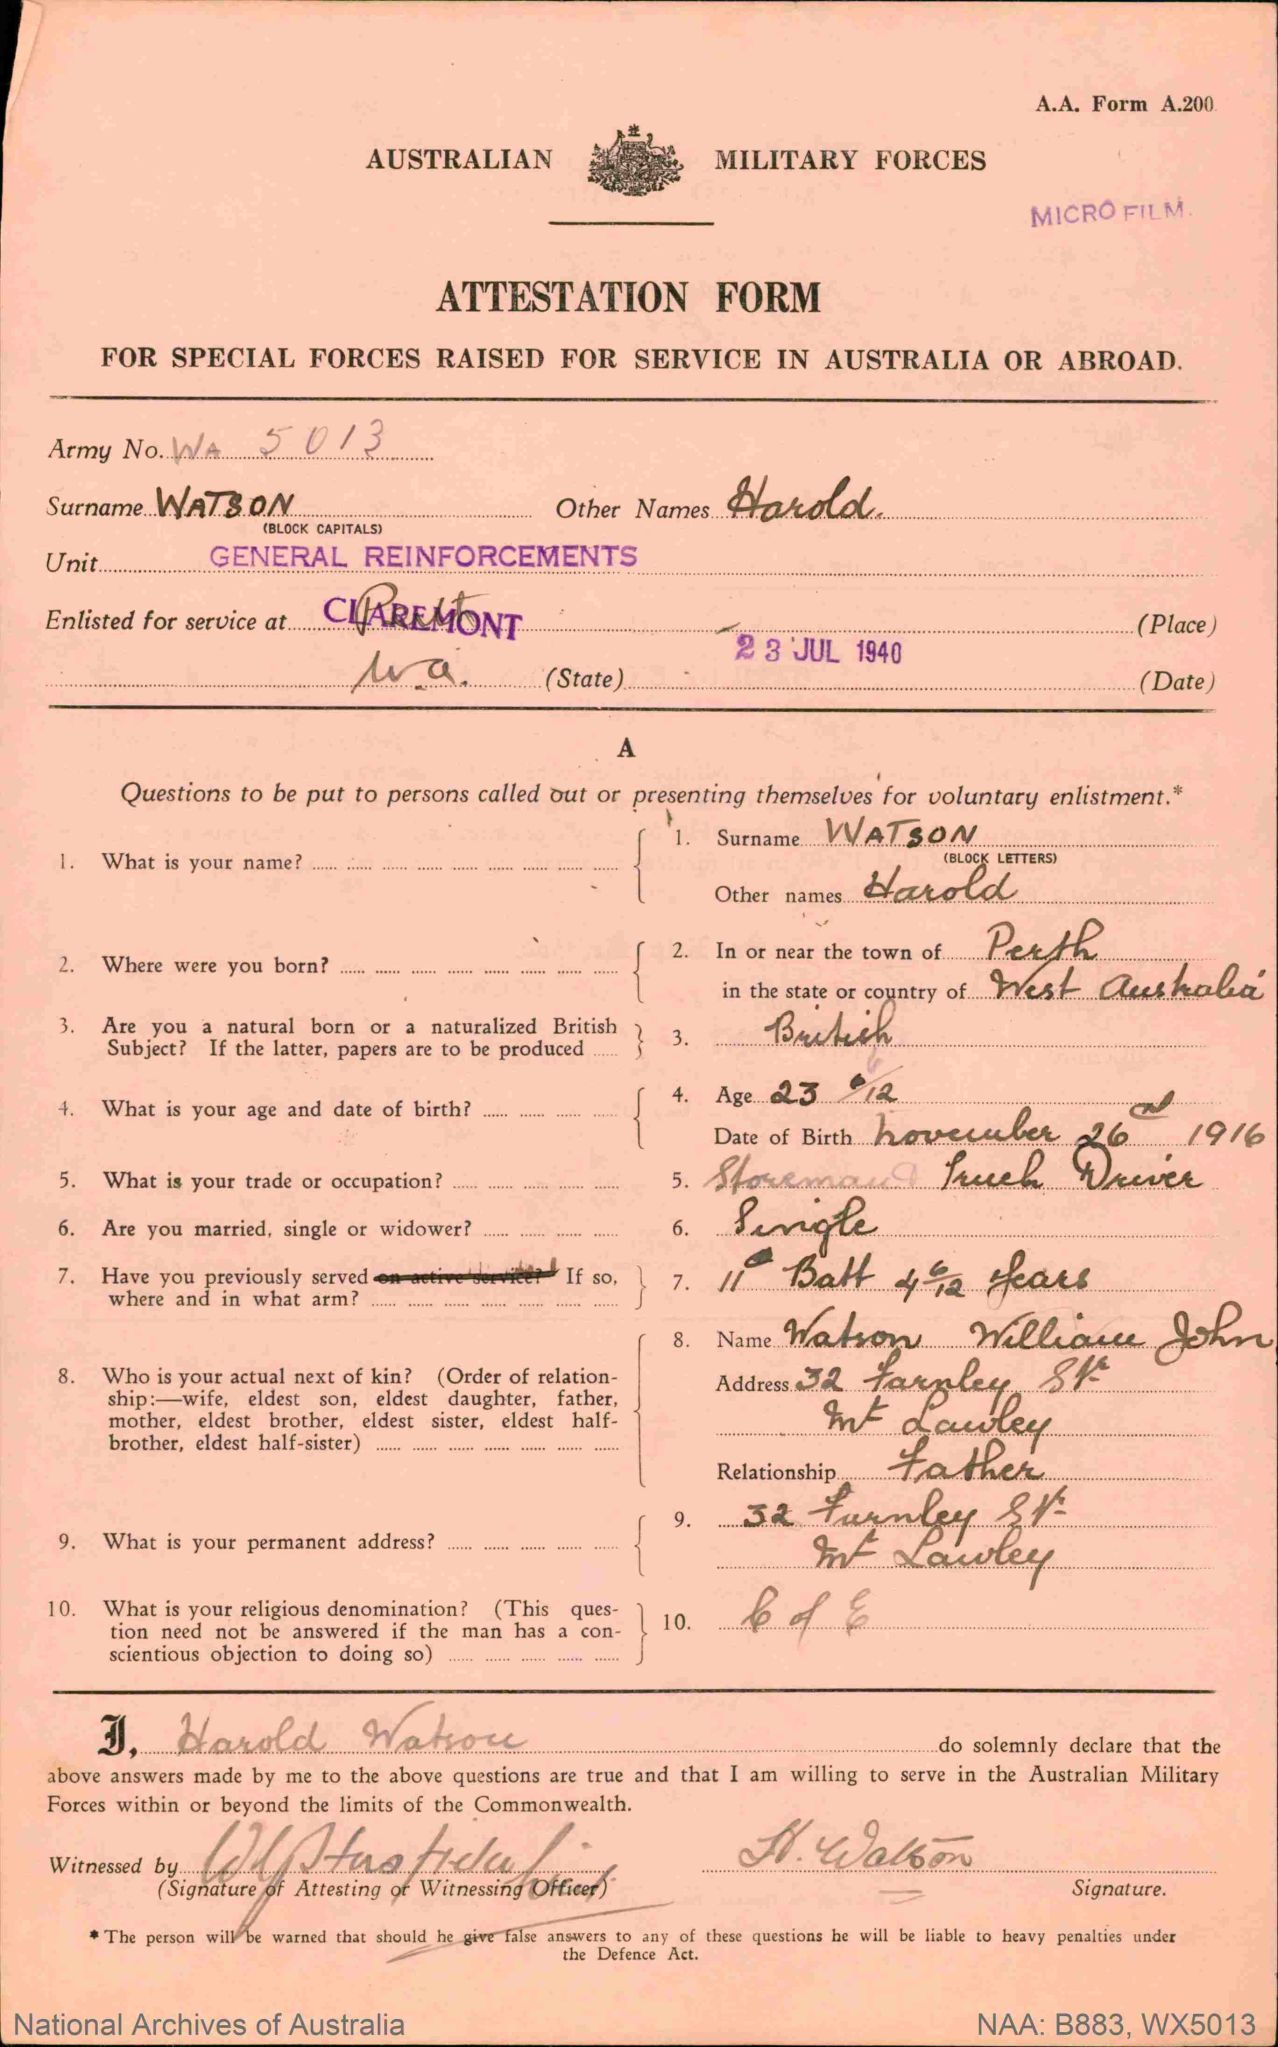 A.A. Form A.200
AUSTRALIAN MILITARY FORCES
MICRO FILM.
ATTESTATION FORM
FOR SPECIAL FORCES RAISED FOR SERVICE IN AUSTRALIA OR ABROAD.
Army No. WA 5013
Surname WATSON Other Names Harold.
(BLOCK CAPITALS)
Unit GENERAL REINFORCEMENTS
Enlisted for service at Perth CLAREMONT (Place)
W.A. (State) 23 JUL 1940 (Date)
A
Questions to be put to persons called out or presenting themselves for voluntary enlistment.*
1. What is your name? 1. Surname WATSON
(BLOCK LETTERS)
Other names Harold
2. Where were you born? 2. In or near the town of Perth
in the state or country of West Australia
3. Are you a natural born or a naturalized British
Subject? If the latter, papers are to be produced 3. British
4. What is your age and date of birth? 4. Age 23 6/12
Date of Birth November 26 1916
5. What is your trade or occupation? 5. Storeman Truck Driver
6. Are you married, single or widower? 6. Single
7. Have you previously served on active service? If so,
where and in what arm? 7. 11th Batt 4 6/12 years
8. Who is your actual next of kin? (Order of relation-
ship:—wife, eldest son, eldest daughter, father,
mother, eldest brother, eldest sister, eldest half-
brother, eldest half-sister)
8. Name Watson William John
Address 32 Farnley St
Mt Lawley
Relationship Father
9. What is your permanent address? 9. 32 Farnley St
Mt Lawley
10. What is your religious denomination? (This ques-
tion need not be answered if the man has a con-
scientious objection to doing so) 10. C of E
I, Harold Watson do solemnly declare that the
above answers made by me to the above questions are true and that I am willing to serve in the Australian Military
Forces within or beyond the limits of the Commonwealth.
Witnessed by H. Watson
(Signature of Attesting or Witnessing Officer) Signature.
* The person will be warned that should he give false answers to any of these questions he will be liable to heavy penalties under
the Defence Act.
National Archives of Australia NAA: B883, WX5013